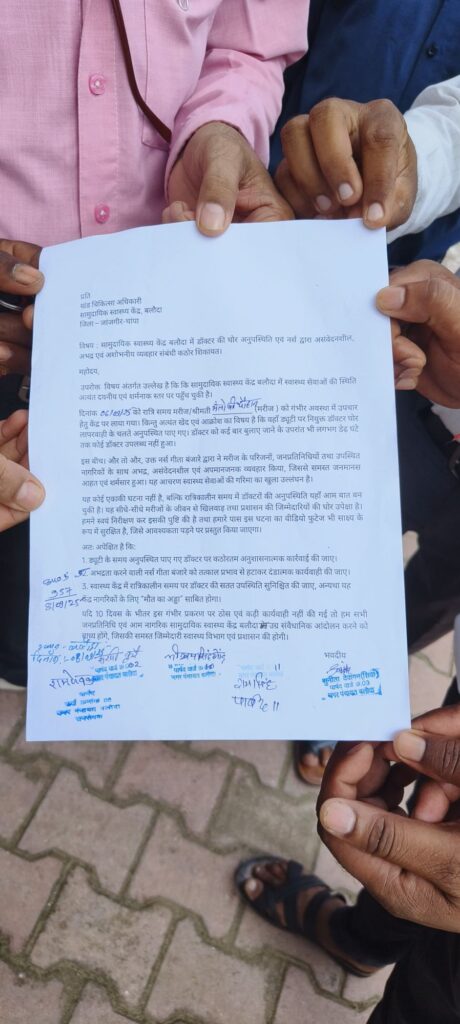 प्रति
खंड चिकित्सा अधिकारी
सामुदायिक स्वास्थ्य केंद्र, बलौदा
जिला – जांजगीर-चांपा
विषय : सामुदायिक स्वास्थ्य केंद्र बलौदा में डॉक्टर की घोर अनुपस्थिति एवं नर्स द्वारा असंवेदनशील,
अभद्र एवं अशोभनीय व्यवहार संबंधी कठोर शिकायत।
महोदय,
उपरोक्त विषय अंतर्गत उल्लेख है कि कि सामुदायिक स्वास्थ्य केंद्र बलौदा में स्वास्थ्य सेवाओं की स्थिति
अत्यंत दयनीय एवं शर्मनाक स्तर पर पहुँच चुकी है।
दिनांक की रात्रि समय मरीज/श्रीमती (मरीज ) को गंभीर अवस्था में उपचार
हेतु केंद्र पर लाया गया। किन्तु अत्यंत खेद एवं आक्रोश का विषय है कि वहाँ ड्यूटी पर नियुक्त डॉक्टर घोर
लापरवाही के चलते अनुपस्थित पाए गए। डॉक्टर को कई बार बुलाए जाने के उपरांत भी लगभग डेढ़ घंटे
तक कोई डॉक्टर उपलब्ध नहीं हुआ।
इस बीच। और तो और, उक्त नर्स गीता बंजारे द्वारा ने मरीज के परिजनों, जनप्रतिनिधियों तथा उपस्थित
नागरिकों के साथ अभद्र, असंवेदनशील एवं अपमानजनक व्यवहार किया, जिससे समस्त जनमानस
आहत एवं शर्मसार हुआ। यह आचरण स्वास्थ्य सेवाओं की गरिमा का खुला उल्लंघन है।
यह कोई एकाकी घटना नहीं है, बल्कि रात्रिकालीन समय में डॉक्टरों की अनुपस्थिति यहाँ आम बात बन
चुकी है। यह सीधे-सीधे मरीजों के जीवन से खिलवाड़ तथा प्रशासन की जिम्मेदारियों की घोर उपेक्षा है।
हमने स्वयं निरीक्षण कर इसकी पुष्टि की है तथा हमारे पास इस घटना का वीडियो फुटेज भी साक्ष्य के
रूप में सुरक्षित है, जिसे आवश्यकता पड़ने पर प्रस्तुत किया जाएगा।
अतः अपेक्षित है कि:
1. ड्यूटी के समय अनुपस्थित पाए गए डॉक्टर पर कठोरतम अनुशासनात्मक कार्रवाई की जाए।
2. अभद्रता करने वाली नर्स गीता बंजारे को तत्काल प्रभाव से हटाकर दंडात्मक कार्यवाही की जाए।
957
3. स्वास्थ्य केंद्र में रात्रिकालीन समय पर डॉक्टर की सतत उपस्थिति सुनिश्चित की जाए, अन्यथा यह
केंद्र नागरिकों के लिए "मौत का अड्डा" साबित होगा।
यदि 10 दिवस के भीतर इस गंभीर प्रकरण पर ठोस एवं कड़ी कार्यवाही नहीं की गई तो हम सभी
जनप्रतिनिधि एवं आम नागरिक सामुदायिक स्वास्थ्य केंद्र बलौदा में उग्र संवैधानिक आंदोलन करने को
बाध्य होंगे, जिसकी समस्त जिम्मेदारी स्वास्थ्य विभाग एवं प्रशासन की होगी।
भवदीय
पार्षद
नगर पंचायत बलौदा